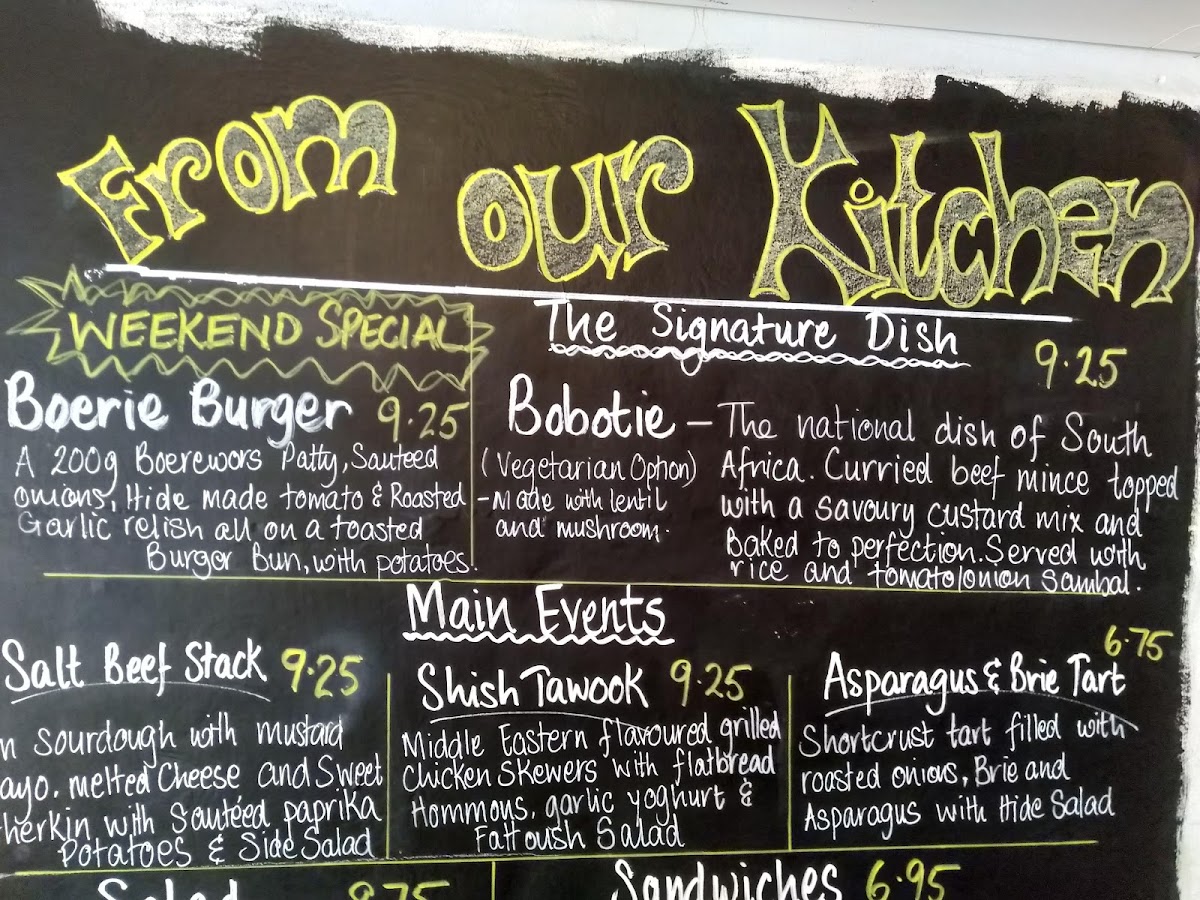 From our Kitchen
WEEKEND SPECIAL
Boerie Burger 9.25
A 200g Boerewors Patty, Sauteed
onions, Hide made tomato & Roasted
Garlic relish all on a toasted
Burger Bun, with potatoes.
The Signature Dish
9.25
Bobotie – The national dish of South
(Vegetarian Option)
- Made with lentil
and mushroom.
Africa. Curried beef mince topped
with a savoury custard mix and
Baked to perfection. Served with
rice and tomato/onion Sambal.
Main Events
Salt Beef Stack 9.25
n Sourdough with mustard
ayo, melted Cheese and Sweet
herkin with Sautéed paprika
Potatoes & Side Salad
Shish Tawook 9.25
Middle Eastern flavoured grilled
Chicken Skewers with flatbread
Hommous, garlic yoghurt &
Fattoush Salad
6.75
Asparagus & Brie Tart
Shortcrust tart filled with
roasted onions, Brie and
Asparagus with Hide Salad
Salad 8.75
Sandwiches 6.95